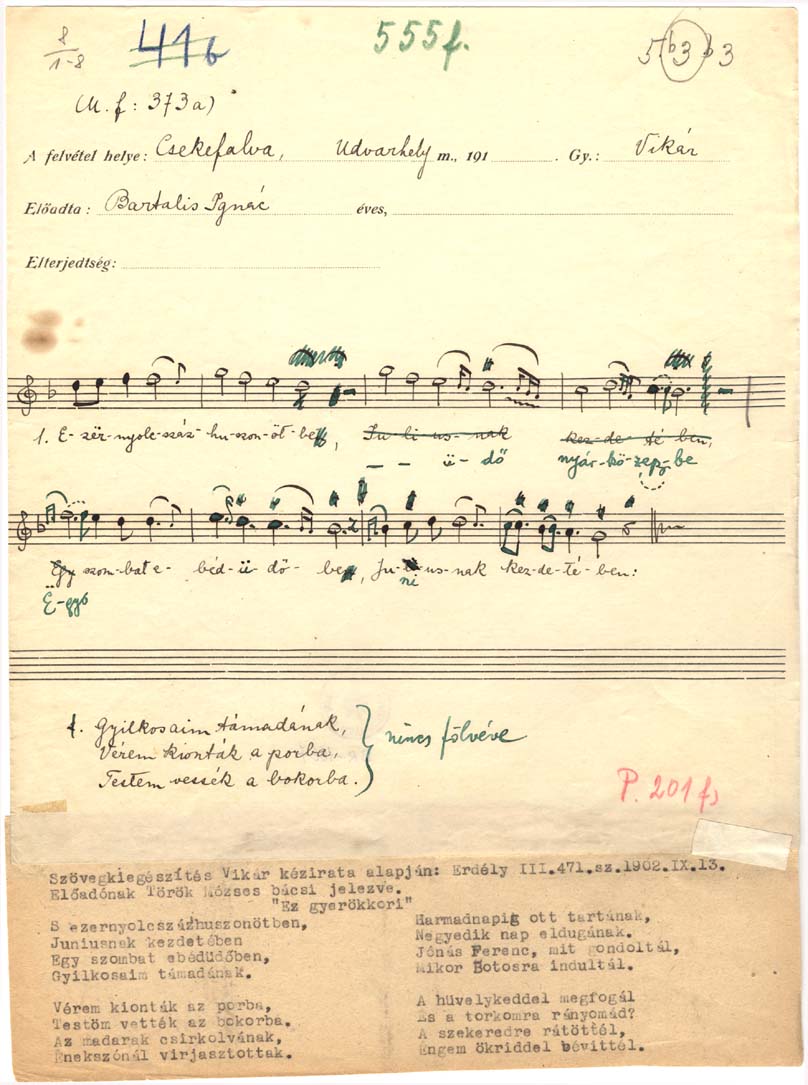 8
1-8
41b
555f.
5 b3 b3
(M. f: 373a)
A felvétel helye: Csekefalva, Udvarhely m., 191 . Gy.: Vikár
Előadta: Bartalis Ignác éves,
Elterjedtség:
1. E- zër-nyolc-száz hu-szon-öt-be, Ju-li-us-nak kez-de-té-ben,
– – ü- dő nyár-kö-zep-be
Egy szom-bat e- béd-ü-dő- be, Ju- us-nak kez-de-té-ben:
Ë-gy ni
f. Gyilkosaim támadának,
Vérem kionták a porba,
Testem vessék a bokorba.
nincs fölvéve
P. 201f
Szövegkiegészítés Vikár kézirata alapján: Erdély III.471.sz.1902.IX.13.
Előadónak Török Mózses bácsi jelezve.
"Ez gyerökkori"
S ezernyolcszázhuszonötben,
Juniusnak kezdetében
Egy szombat ebédüdőben,
Gyilkosaim támadának.
Vérem kionták az porba,
Testöm vették az bokorba.
Az madarak csirkolvának,
Énekszónál virjasztottak.
Harmadnapig ott tartának,
Negyedik nap eldugának.
Jónás Ferenc, mit gondoltál,
Mikor Botosra indultál.
A hüvelykeddel megfogál
És a torkomra rányomád?
A szekeredre rátöttél,
Engem ökriddel bévittél.